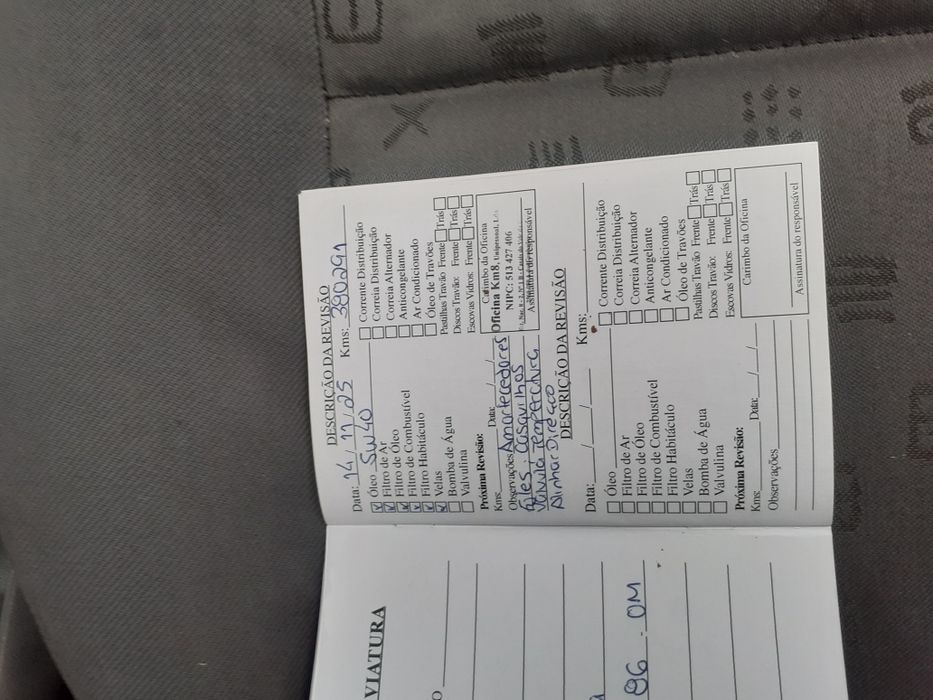 VIATURA
96 - OM
DESCRIÇÃO DA REVISÃO
Data: 14/11/25 Kms: 390291
Óleo 5W40
Filtro de Ar
Filtro de Óleo
Filtro de Combustível
Filtro Habitáculo
Velas
Bomba de Água
Valvulina
Corrente Distribuição
Correia Distribuição
Correia Alternador
Anticongelante
Ar Condicionado
Óleo de Travões
Pastilhas Travão Frente Trás
Discos Travão: Frente Trás
Escovas Vidros: Frente Trás
Próxima Revisão:
Kms Data: / /
Observações Amortecedores
Casquilhos
Valvula Temperatura
Alinhar Direção
Carimbo da Oficina
Oficina Km8, Unipessoal, Lda
NIPC: 513 427 406
Assinatura do responsável
DESCRIÇÃO DA REVISÃO
Data: / / Kms:
Óleo
Filtro de Ar
Filtro de Óleo
Filtro de Combustível
Filtro Habitáculo
Velas
Bomba de Água
Valvulina
Corrente Distribuição
Correia Distribuição
Correia Alternador
Anticongelante
Ar Condicionado
Óleo de Travões
Pastilhas Travão Frente Trás
Discos Travão: Frente Trás
Escovas Vidros: Frente Trás
Próxima Revisão:
Kms Data: / /
Observações
Carimbo da Oficina
Assinatura do responsável